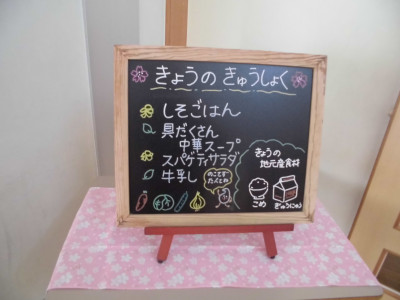 きょうの きゅうしょく
しそごはん
具だくさん
中華スープ
スパゲティサラダ
牛乳
のこさず
たべてね
きょうの
地元産食材
こめ
ぎゅうにゅう